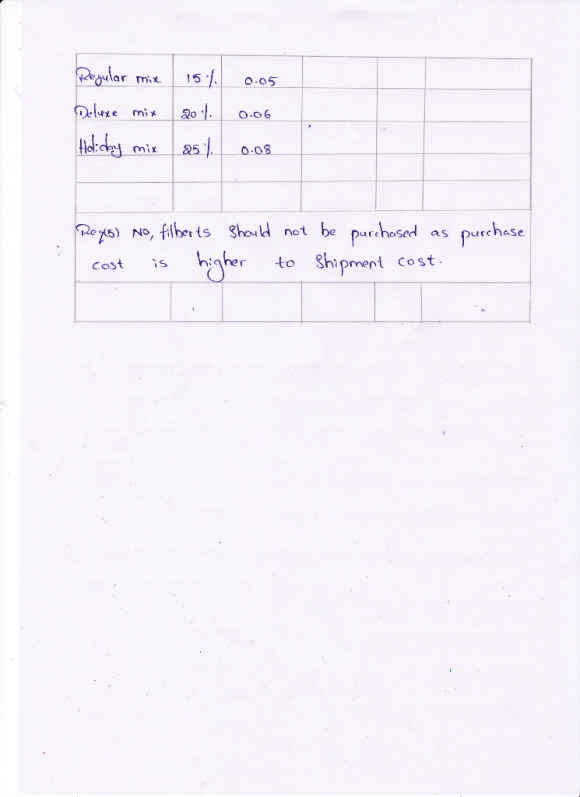 Regular mix 15% 0.05
Deluxe mix 20% 0.06
Holiday mix 25% 0.08
Req(5) NO, filberts should not be purchased as purchase
cost is higher to shipment cost.